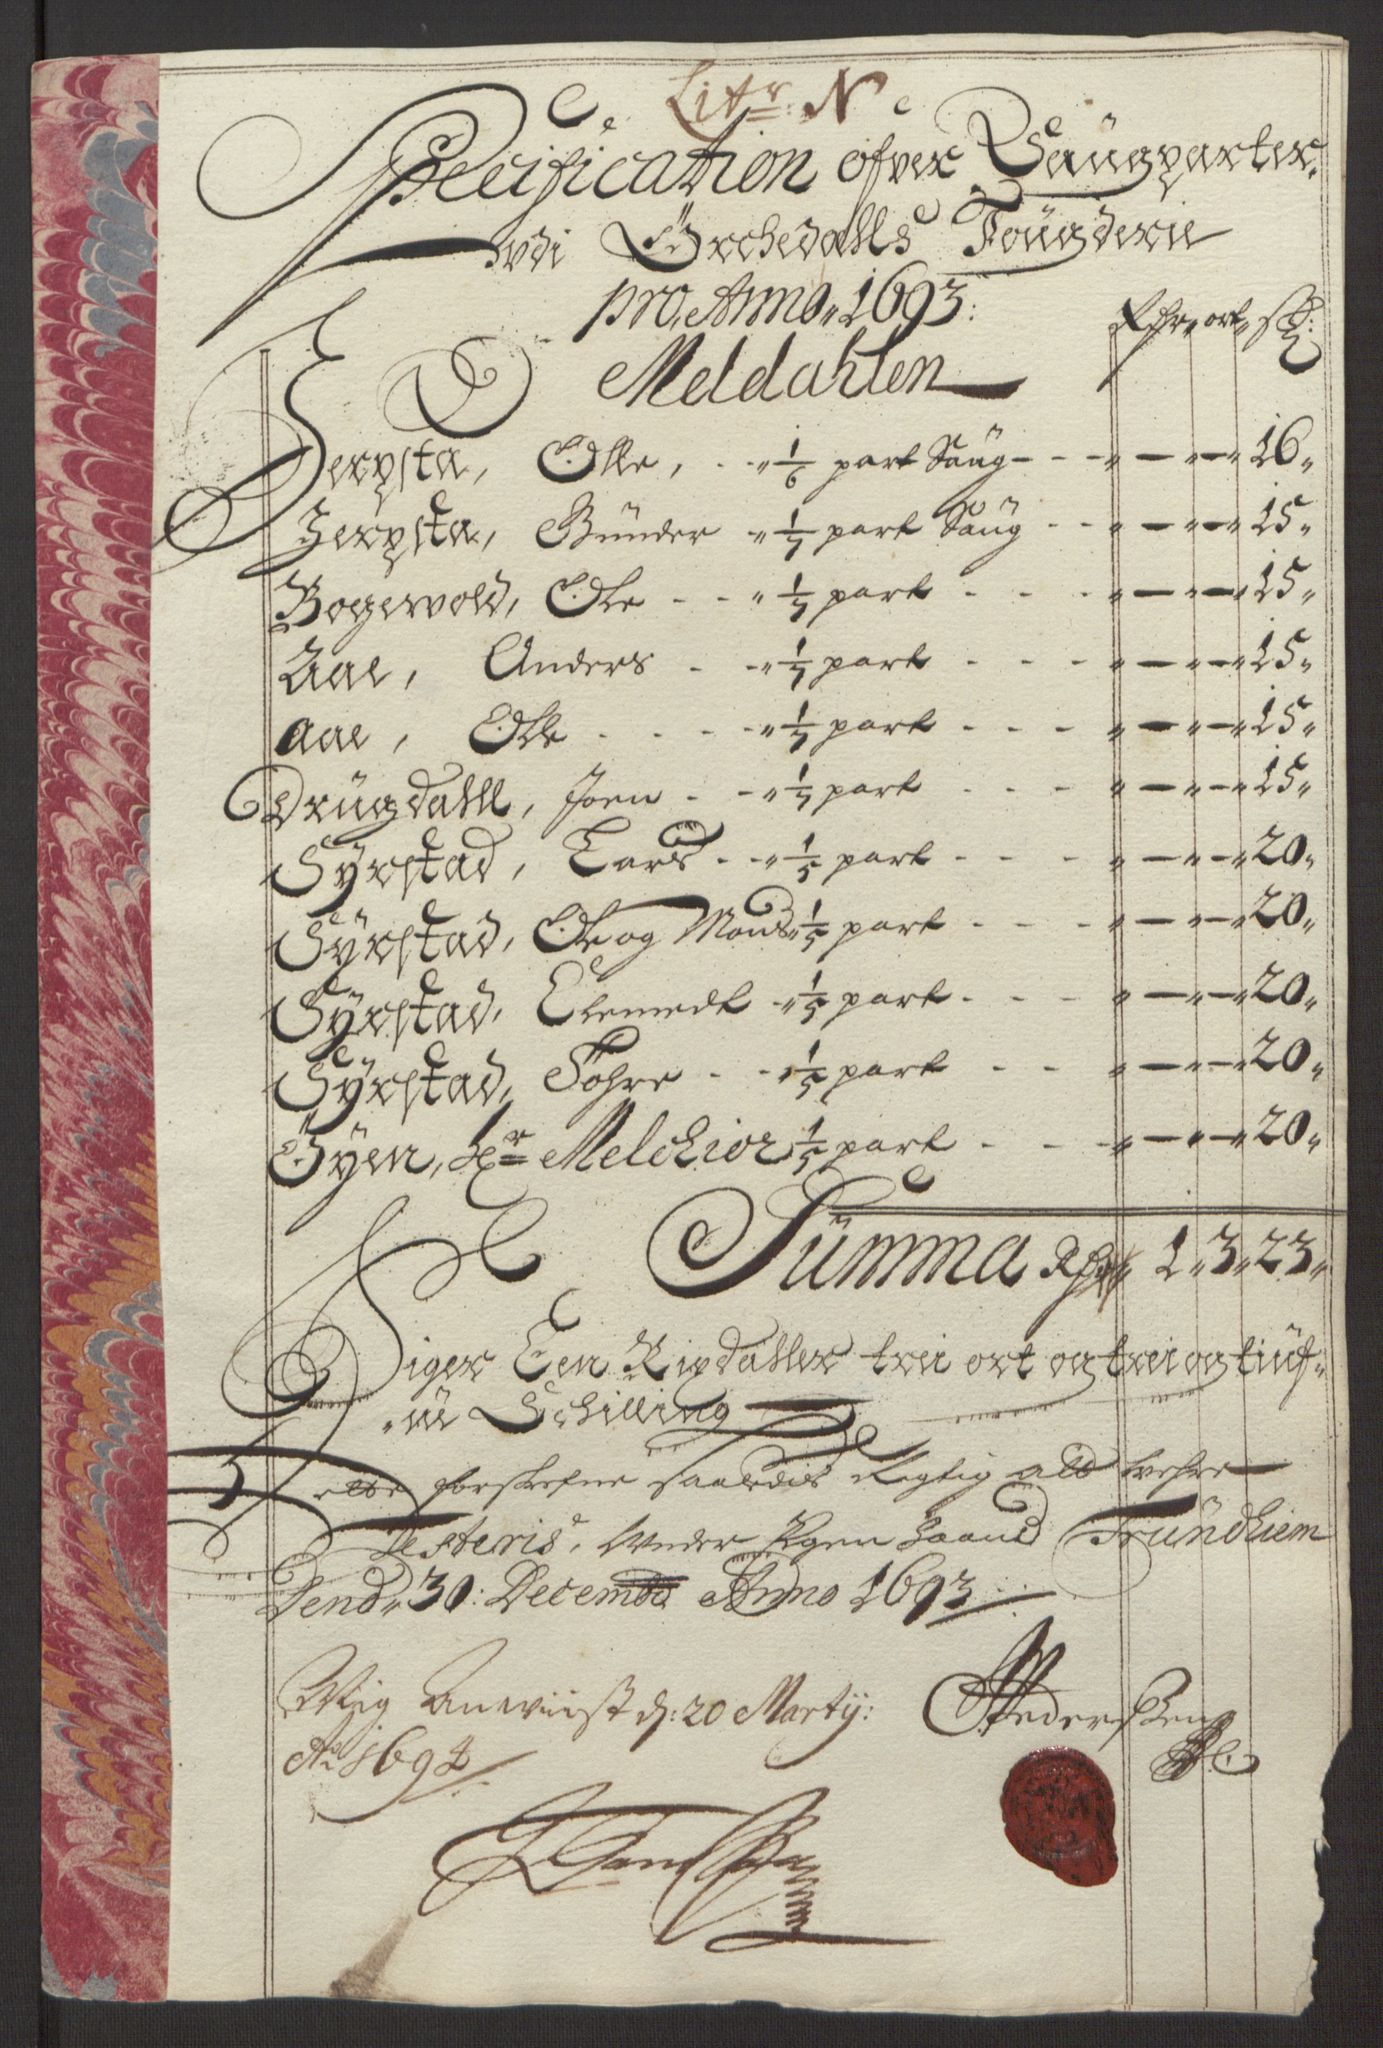 Litr: N
Specification ofver Saugparter
udi Örchedalls Fougderie
pro, Anno, 1693:
Rdr ort s:
Meldahlen
Jerpsta, Olle, . . „ 1/6 part Saug - - - „ — „ — „ 16 „
Jerpsta, Gunder „ 1/7 part Saug - - „ — „ — „ 15 „
Bogewold, Ole - - „ 1/7 part - - - „ — „ — „ 15 „
Aae, Anders - - „ 1/7 part - - - „ — „ — „ 15 „
Aae, Olle - - - „ 1/7 part - - - „ — „ — „ 15 „
Drugdahll, Joen - - „ 1/7 part - - - „ — „ — „ 15 „
Syrstad, Lars - - „ 1/5 part - - - „ — „ — „ 20 „
Syrstad, Ole og Mons „ 1/5 part - - - „ — „ — „ 20 „
Syrstad, Clemedt „ 1/5 part - - - „ — „ — „ 20 „
Syrstad, Tohre - - „ 1/5 part - - „ — „ — „ 20 „
Öyen, Hr Melchior 1/5 part - - - „ — „ — „ 20 „
Summa Rdr „ 1 „ 3 „ 23 „
Siger Een Rixdaller trei ort og trei og tiuf-
„ue Schilling
Dette forskrefne saaledis Rigtig att vehre
Testeris, Under Egen haand Trundhiem
Dend, 30: Decembr Anno 1693
Rigtig Anviist d: 20 Martij:
Ao 1694
Pedersen